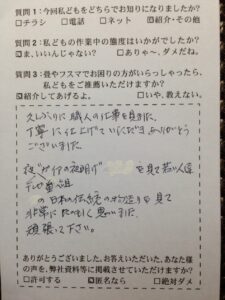 質問1：今回私どもをどちらでお知りになりましたか？
□チラシ　□電話　□ネット　☑紹介・その他
質問2：私どもの作業中の態度はいかがでしたか？
☑ま、いいんじゃない？　□ありゃ～、ダメだね。
質問3：畳やフスマでお困りの方がいらっしゃったら、私どもをご推薦いただけますか？
☑紹介してあげるよ。　□いや、教えない。
久しぶりに職人の仕事を見ました。
丁寧に仕上げていただき ありがとう
ございました。
を見て若い人達
の日本の伝統の
を見て
非常にたのもしく思いました。
頑張って下さい。
ありがとうございました。お答えいただいた、あなた様
の声を、弊社資料等に掲載させていただけますか？
□許可する　☑匿名なら　□絶対ダメ